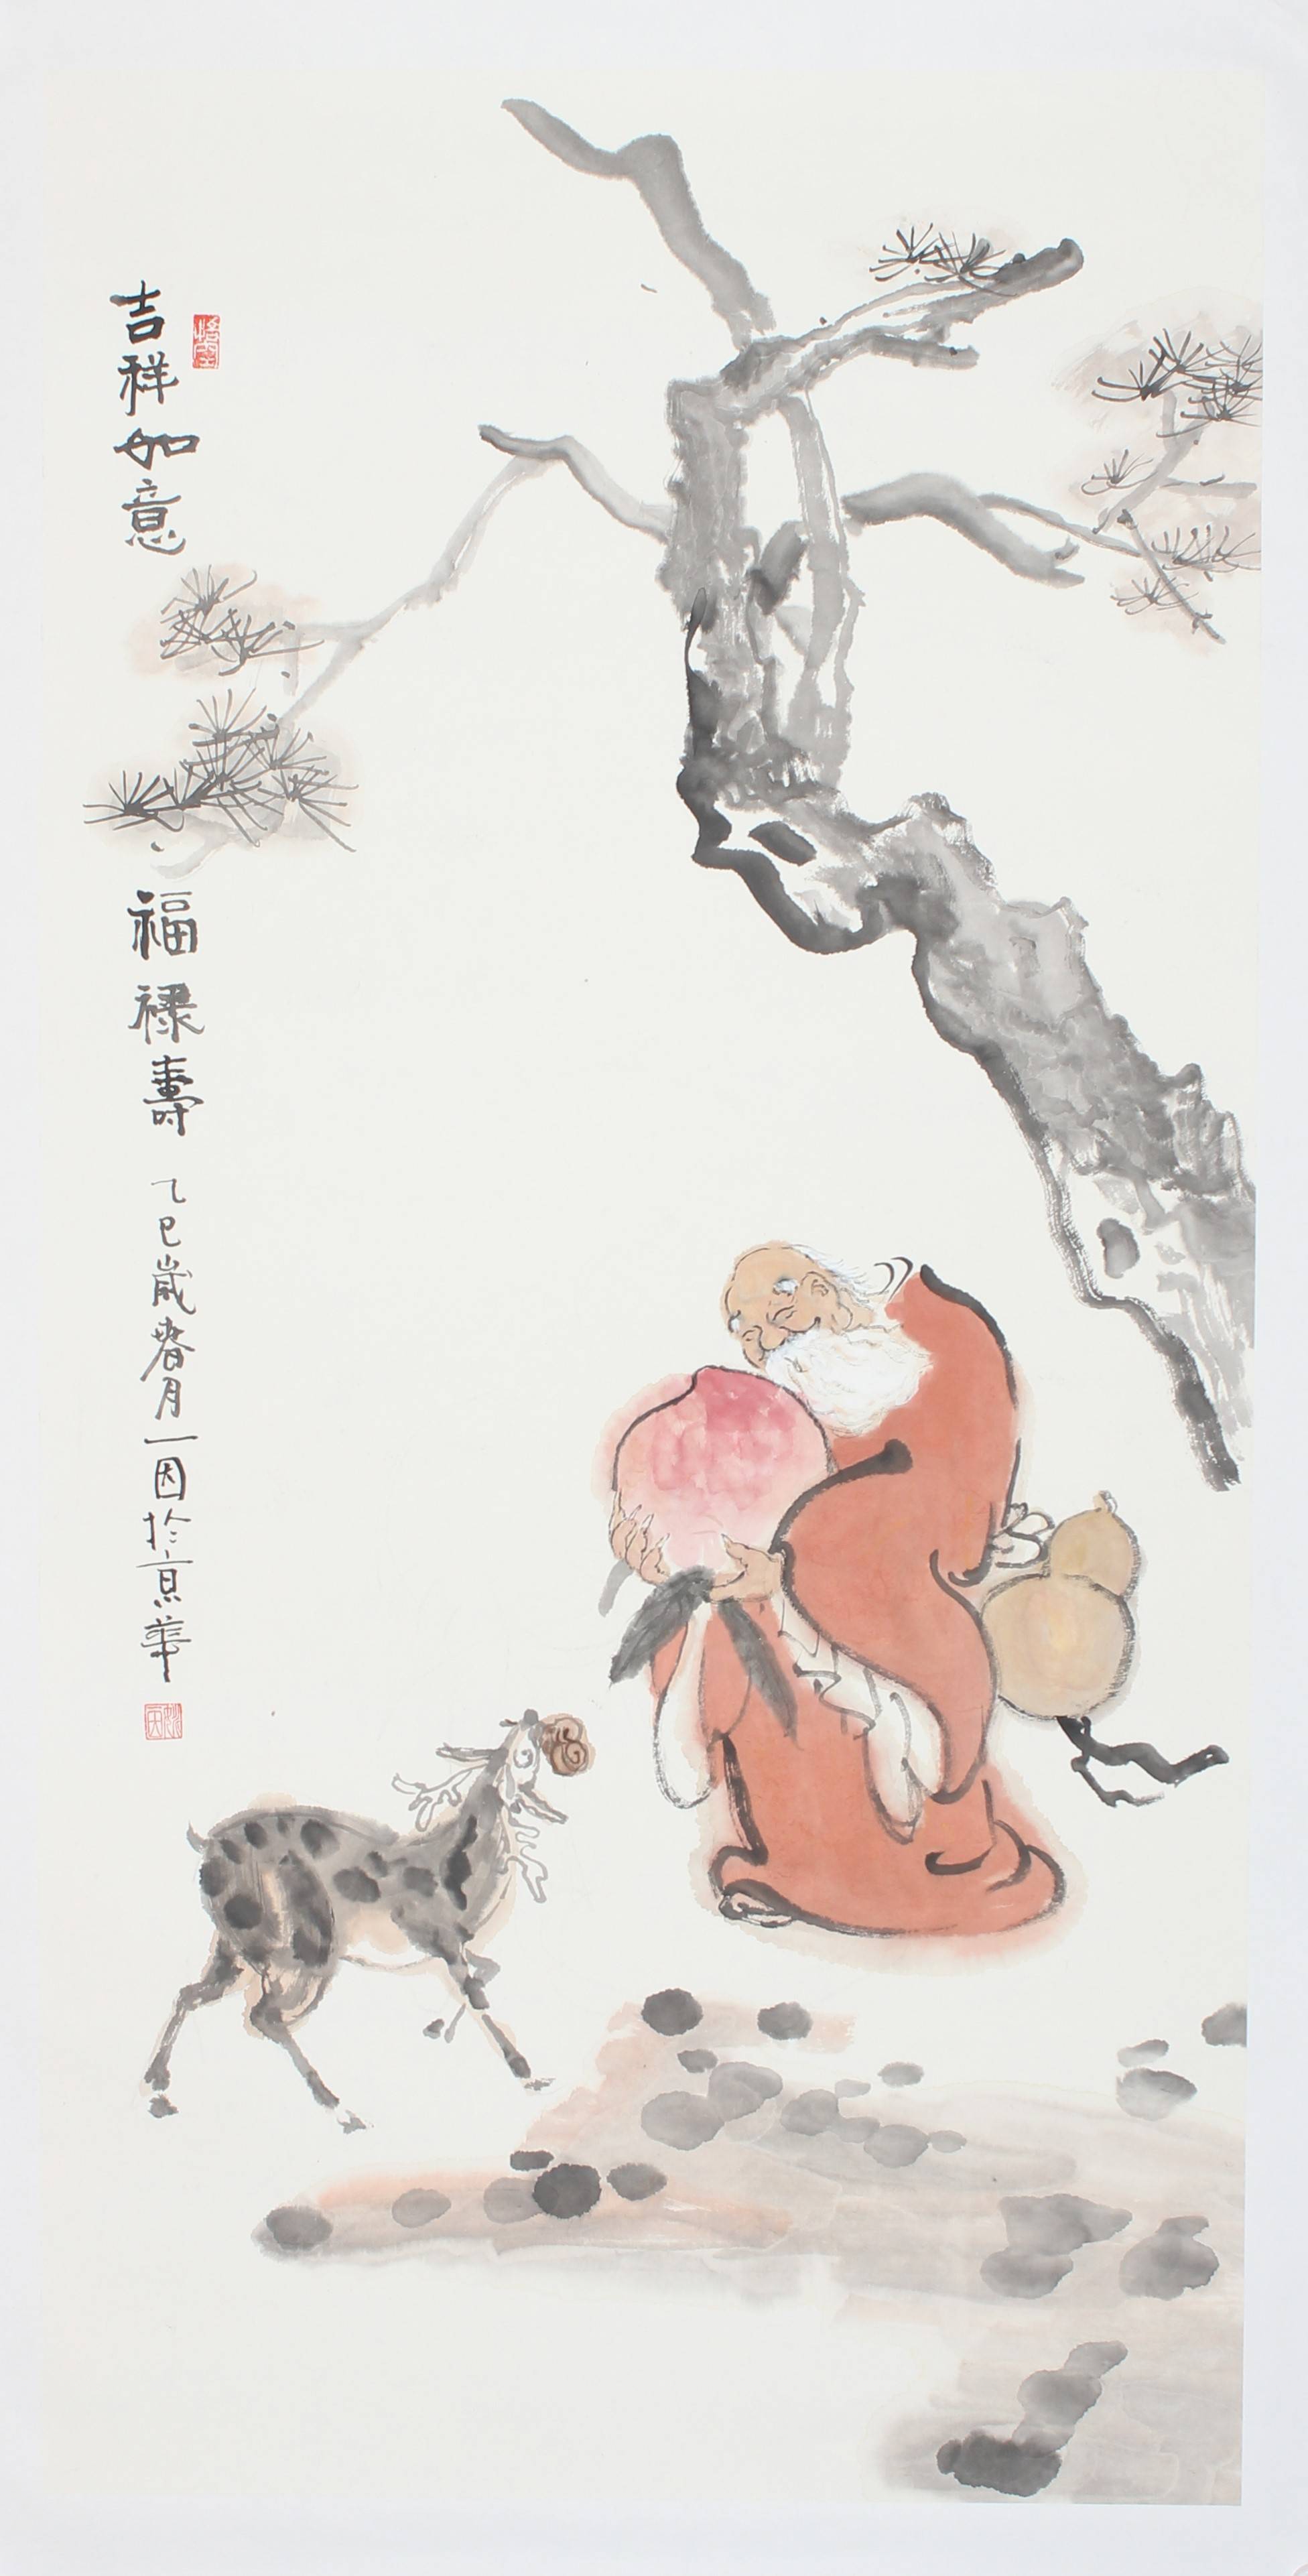 吉祥如意
福祿壽
乙巳歲春月一因於京華